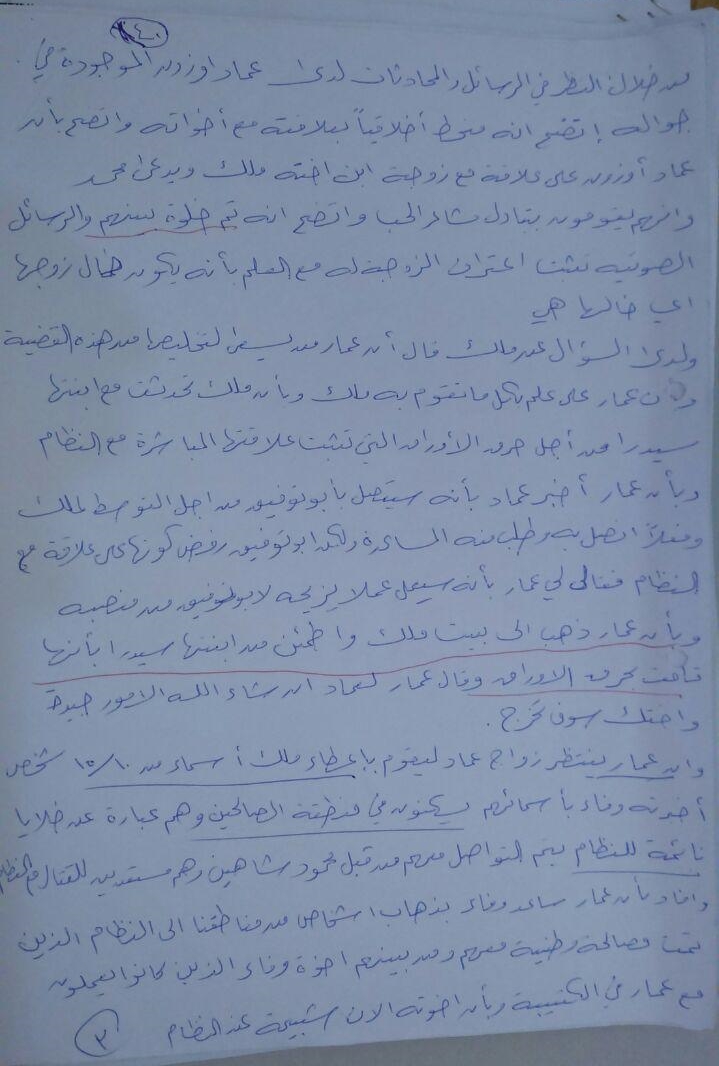 ٤٠
من خلال النظر في الرسائل والمحادثات لدى عماد اوزون الموجودة في
جواله إتضح انه منحط أخلاقياً بعلاقته مع أخواته واتضح بأن
عماد أوزون على علاقة مع زوجة ابن اخته ملك ويدعى محمد
وانهم يقومون بتبادل مشاعر الحب واتضح انه تم خلوة بينهم والرسائل
الصوتيه تثبت اعتراف الزوجة له مع العلم بأنه يكون خال زوجها
اي خالها هي
ولدى السؤال عن ملك قال أن عمار من يسعى لتخليصها من هذه القضية
وأن عمار على علم بكل ما تقوم به ملك وبأن ملك تحدثت مع ابنتها
سيدرا من أجل حرق الأوراق التي تثبت علاقتها المباشرة مع النظام
وبأن عمار أخبر عماد بأنه سيتصل بأبو توفيق من اجل التوسط لملك
وفعلاً اتصل به وطلب منه المساعدة ولكن ابو توفيق رفض كونها على علاقة مع
النظام فقال لي عمار بأنه سيعمل عملا يزيحه لابو توفيق من منصبه
وبأن عمار ذهب الى بيت ملك واطمئن من ابنتها سيدرا بأنها
قامت بحرق الاوراق وقال عمار لعماد ان شاء الله الامور جيدة
واختك سوف تخرج .
وان عمار ينتظر زواج عماد ليقوم بإعطاء ملك أسماء من ١٠/١٥ شخص
أخوته وفاء بأسمائهم يسكنون في منطقة الصالحين وهم عبارة عن خلايا
نائمة للنظام يتم التواصل معهم من قبل محمود شاهين وهم مستعدين للقتال مع النظام
وافاد بأن عمار ساعد وفاء بذهاب اشخاص من مناطقنا الى النظام الذين
تمت مصالحة وطنية معهم ومن بينهم اخوة وفاء الذين كانوا يعملون
مع عمار في الكتيبة وبأن اخوته الان شبيحة عند النظام
٣